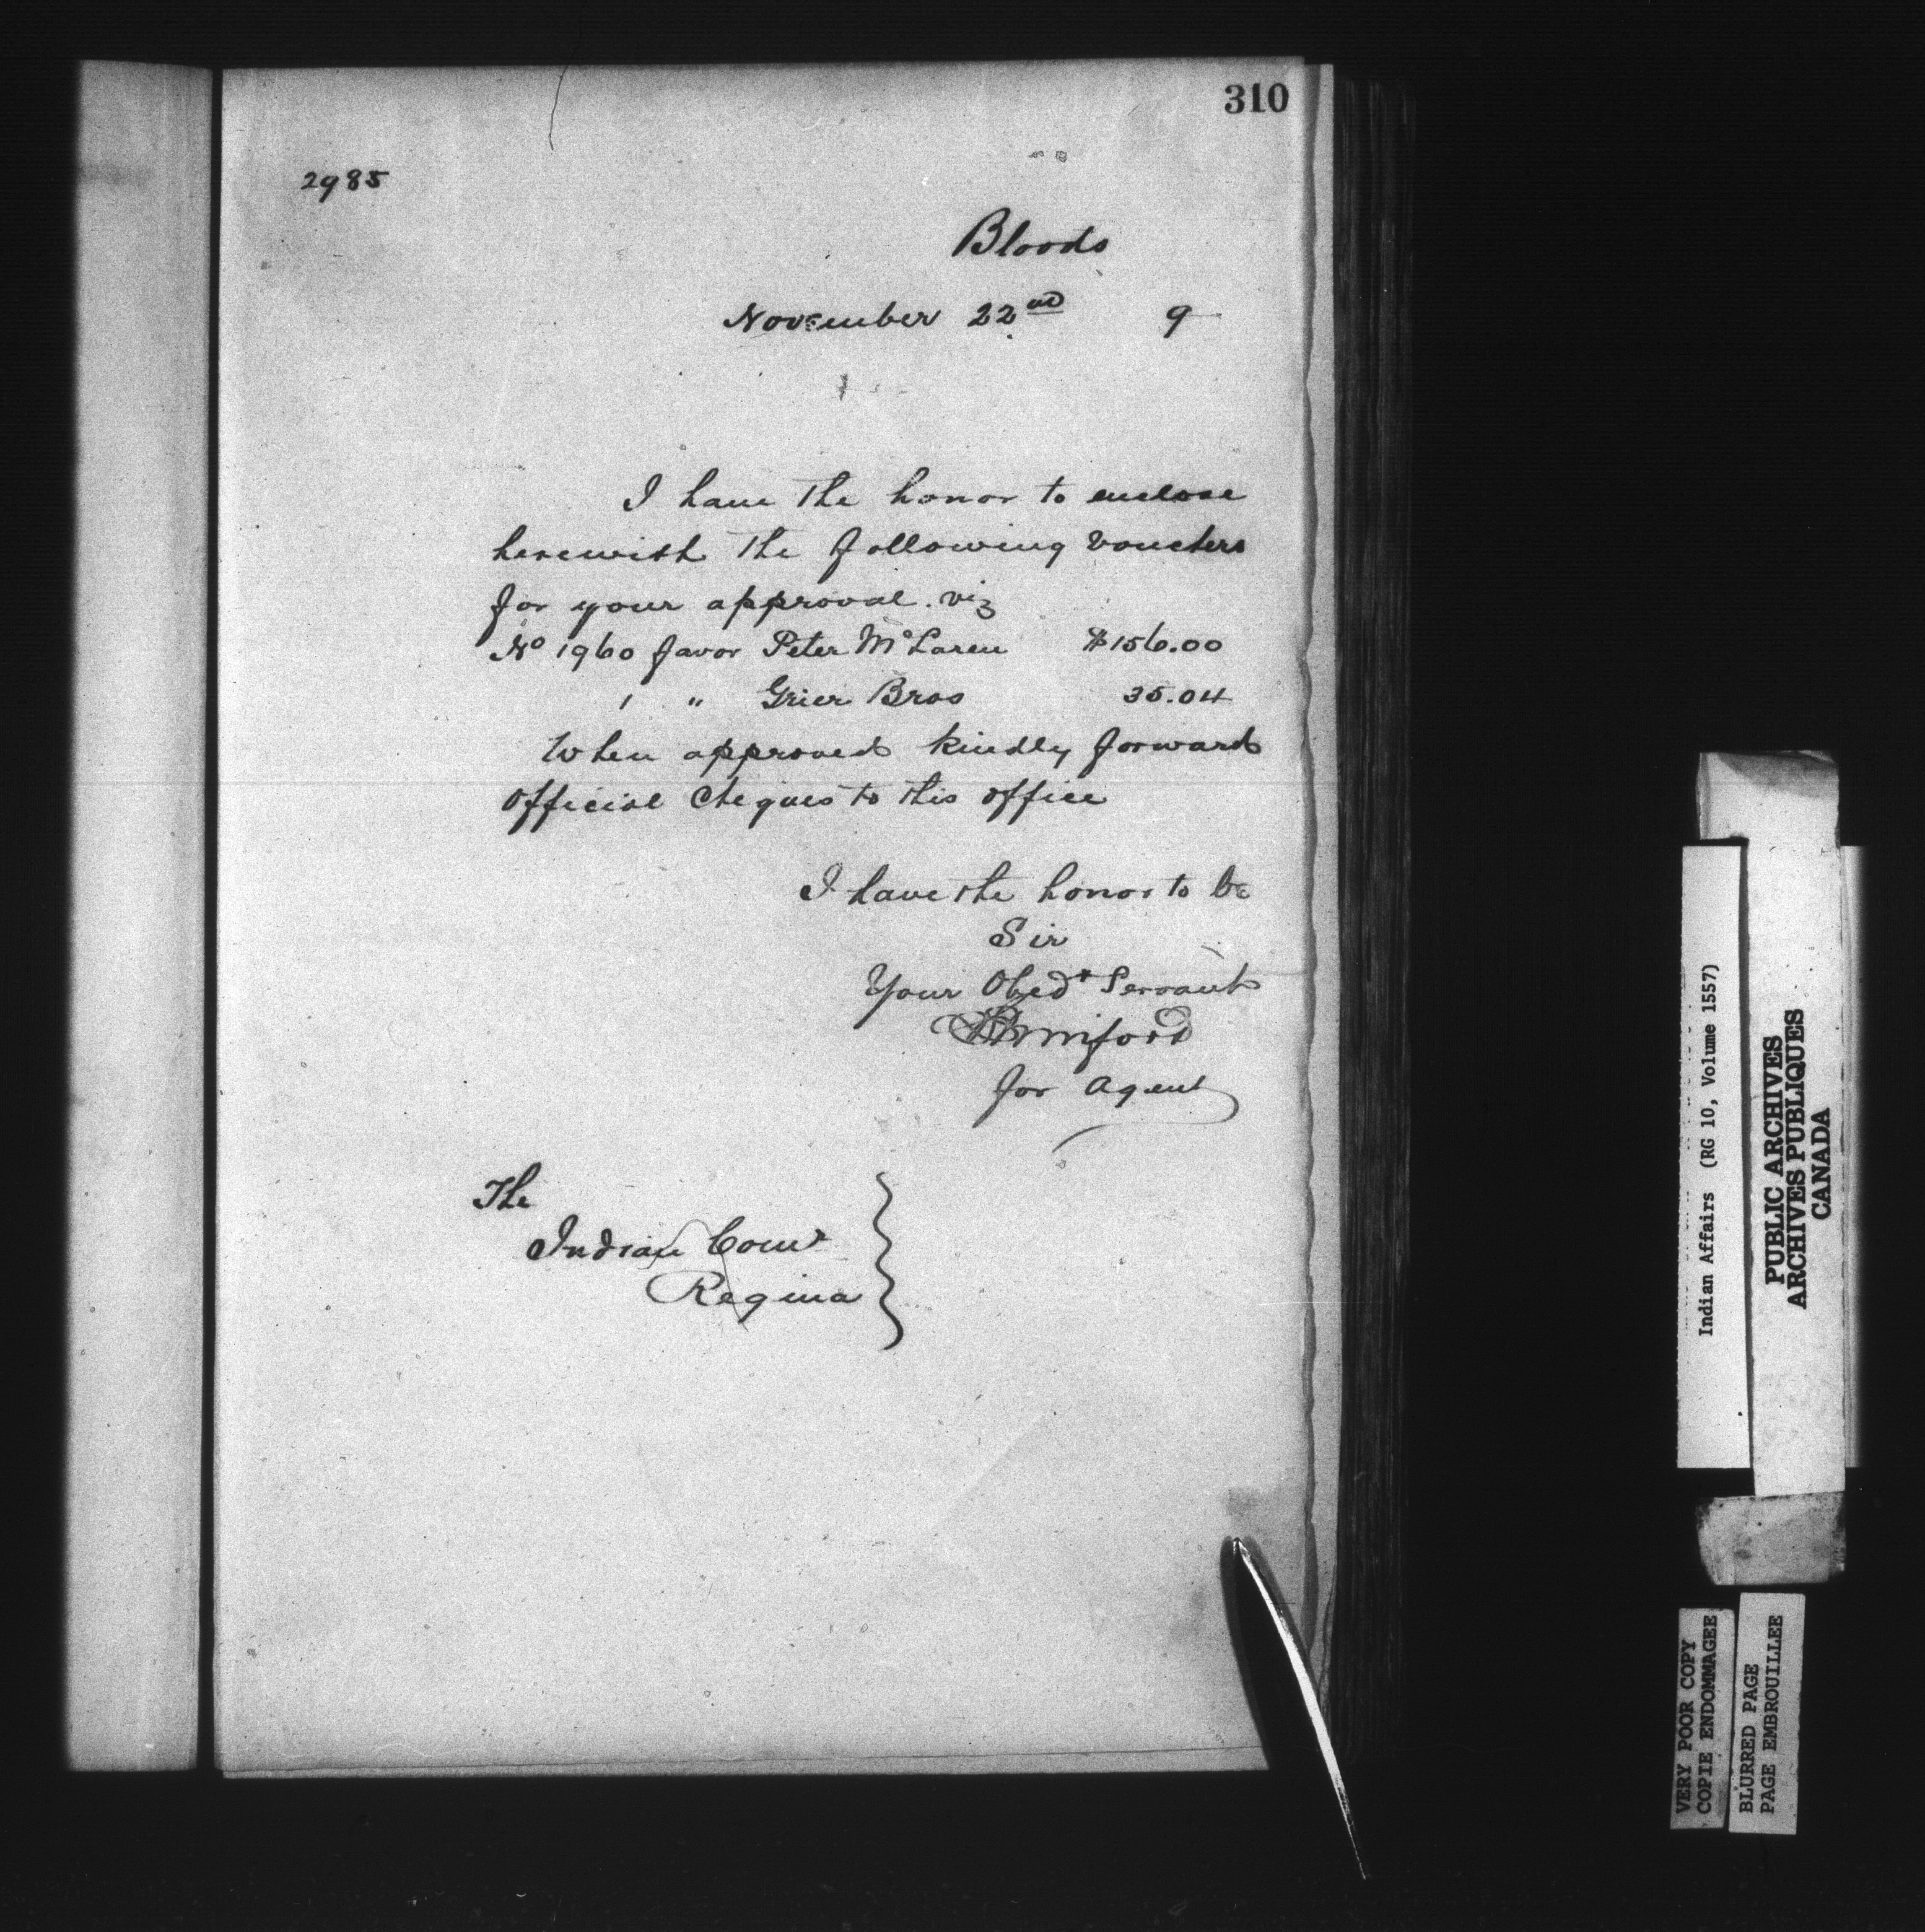 310
2985
Bloods
November 22nd 9
I have the honor to enclose
herewith the following vouchers
for your approval. viz
No 1960 favor Peter McLaren $156.00
1 " Grier Bros 35.04
When approved kindly forward
Official Cheques to this office
I have the honor to be
Sir
Your Obedt Servant
for Agent
The
Indian Comr
Regina
Indian Affairs (RG 10, Volume 1557)
PUBLIC ARCHIVES
ARCHIVES PUBLIQUES
CANADA
VERY POOR COPY
COPIE ENDOMMAGEE
BLURRED PAGE
PAGE EMBROUILLEE